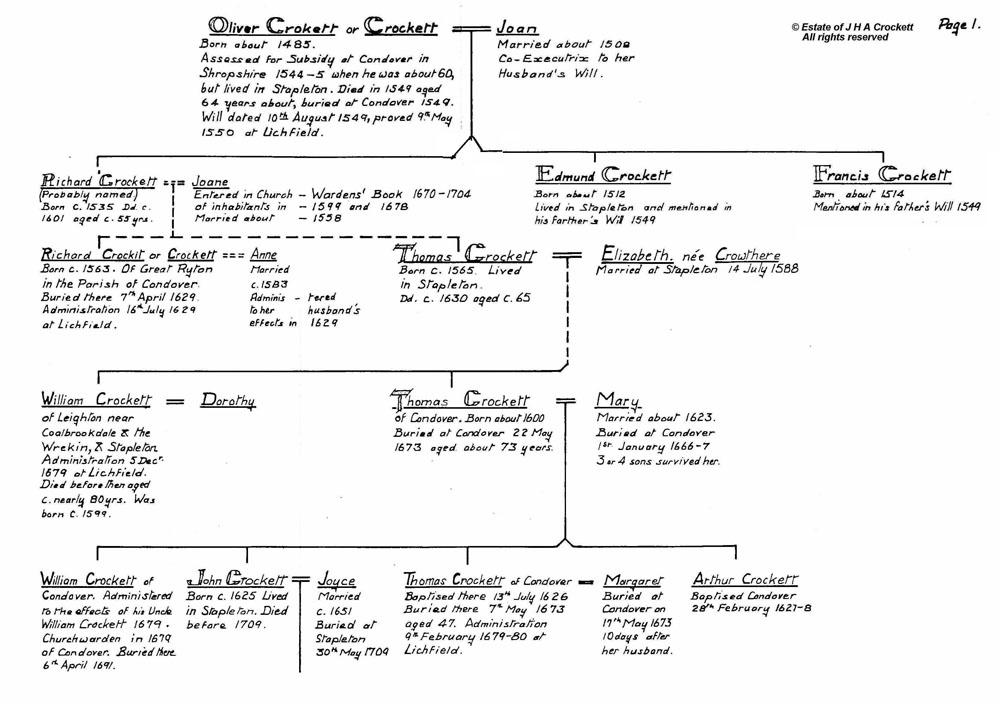 © Estate of J H A Crockett
All rights reserved
Page 1.
Oliver Crokett or Crockett
Born about 1485.
Assessed for Subsidy at Condover in
Shropshire 1544-5 when he was about 60,
but lived in Stapleton. Died in 1549 aged
64 years about, buried at Condover 1549.
Will dated 10th August 1549, proved 9th May
1550 at Lichfield.
Joan
Married about 1508
Co-Executrix to her
Husband's Will.
Richard Crockett
(Probably named)
Born c. 1535 Dd. c.
1601 aged c. 55 yrs.
Joane
Entered in Church - Wardens' Book 1670-1704
of inhabitants in - 1599 and 1678
Married about - 1558
Edmund Crockett
Born about 1512
Lived in Stapleton and mentioned in
his farther's Will 1549
Francis Crockett
Born about 1514
Mentioned in his father's Will 1549
Richard Crockit or Crockett
Born c. 1563. Of Great Ryton
in the Parish of Condover.
Buried there 7th April 1629.
Administration 16th July 1629
at Lichfield.
Anne
Married
c. 1583
Adminis - tered
to her husband's
effects in 1629
Thomas Crockett
Born c. 1565. Lived
in Stapleton.
Dd. c. 1630 aged c. 65
Elizabeth. née Crowthere
Married at Stapleton 14 July 1588
William Crockett
of Leighton near
Coalbrookdale & the
Wrekin, & Stapleton
Administration 5 Decr.
1679 at Lichfield.
Died before then aged
c. nearly 80 yrs. Was
born c. 1599.
Dorothy
Thomas Crockett
of Condover. Born about 1600
Buried at Condover 22 May
1673 aged about 73 years.
Mary
Married about 1623.
Buried at Condover
1st January 1666-7
3 or 4 sons survived her.
William Crockett of
Condover. Administered
to the effects of his Uncle
William Crockett 1679.
Churchwarden in 1679
of Condover. Buried there
6th April 1691.
John Crockett
Born c. 1625 Lived
in Stapleton. Died
before 1709.
Joyce
Married
c. 1651
Buried at
Stapleton
30th May 1709
Thomas Crockett of Condover
Baptised there 13th July 1626
Buried there 7th May 1673
aged 47. Administration
9th February 1679-80 at
Lichfield.
Margaret
Buried at
Condover on
17th May 1673
10 days after
her husband.
Arthur Crockett
Baptised Condover
28th February 1627-8